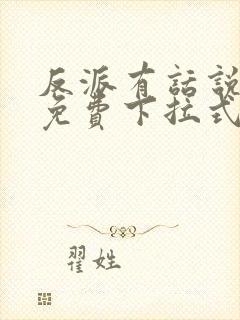 反派有話說
免費下拉式
翟姓